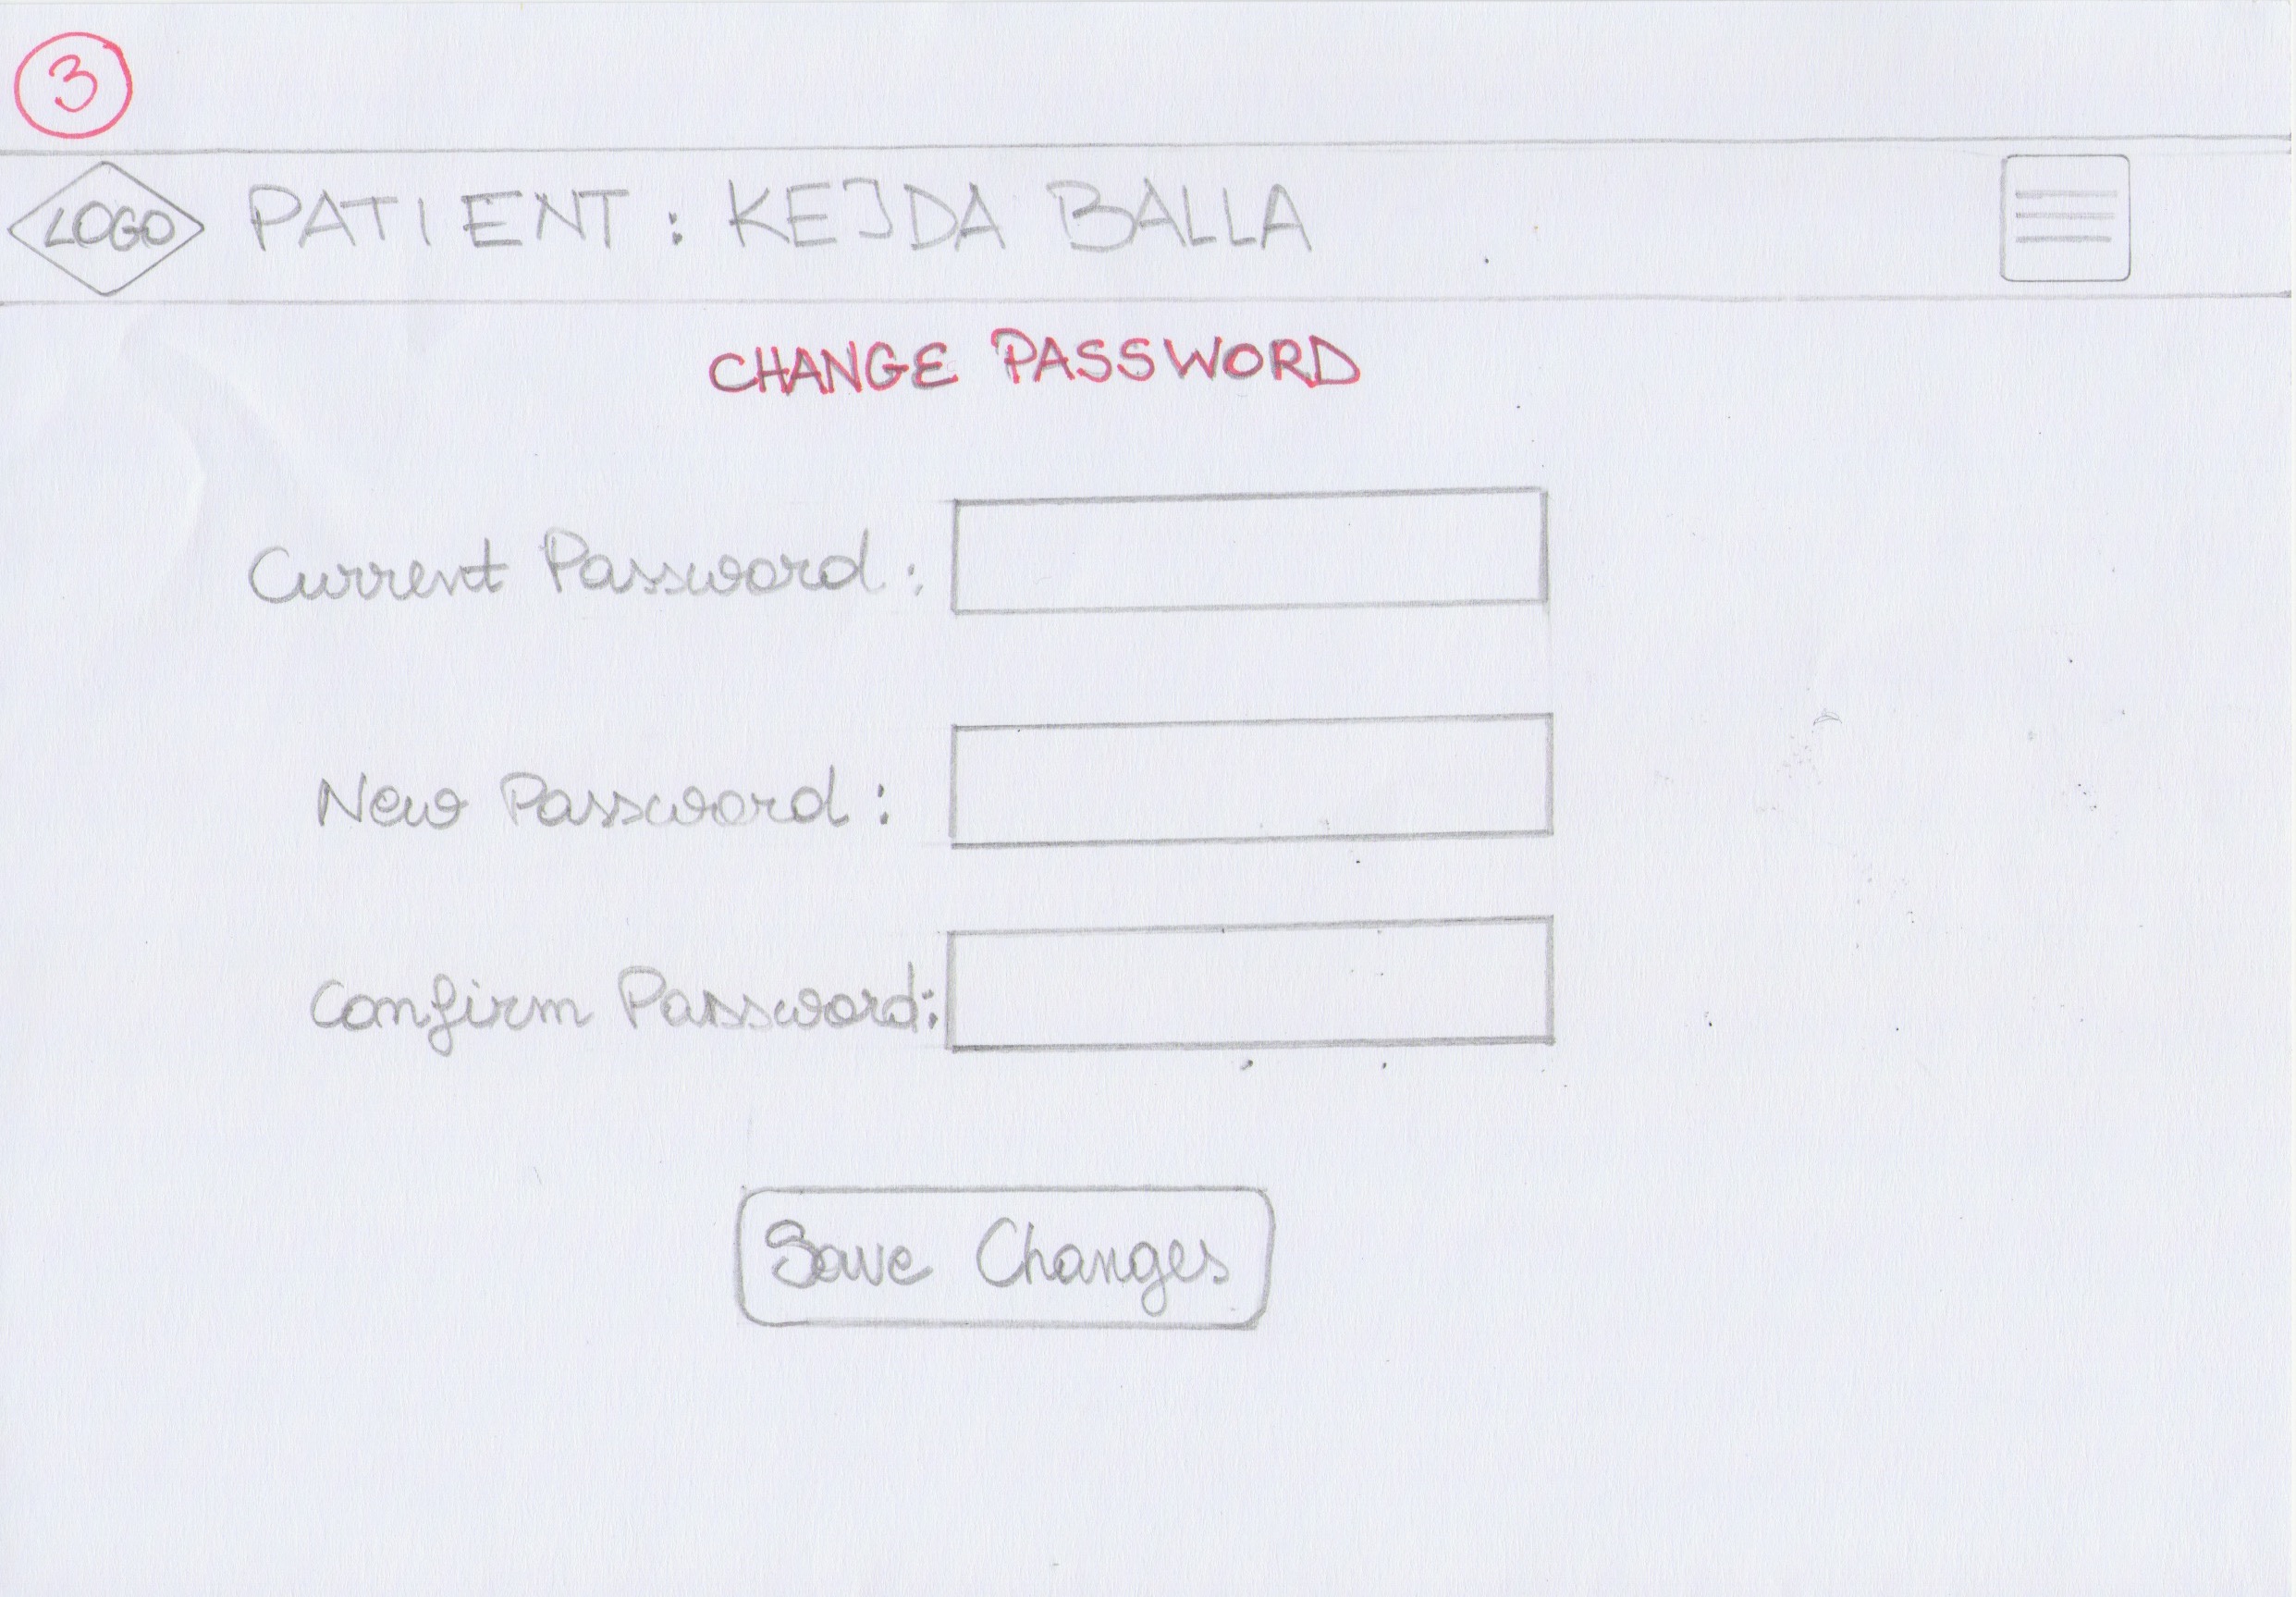 3
LOGO PATIENT: KEJDA BALLA
CHANGE PASSWORD
Current Password:
New Password:
Confirm Password:
Save Changes